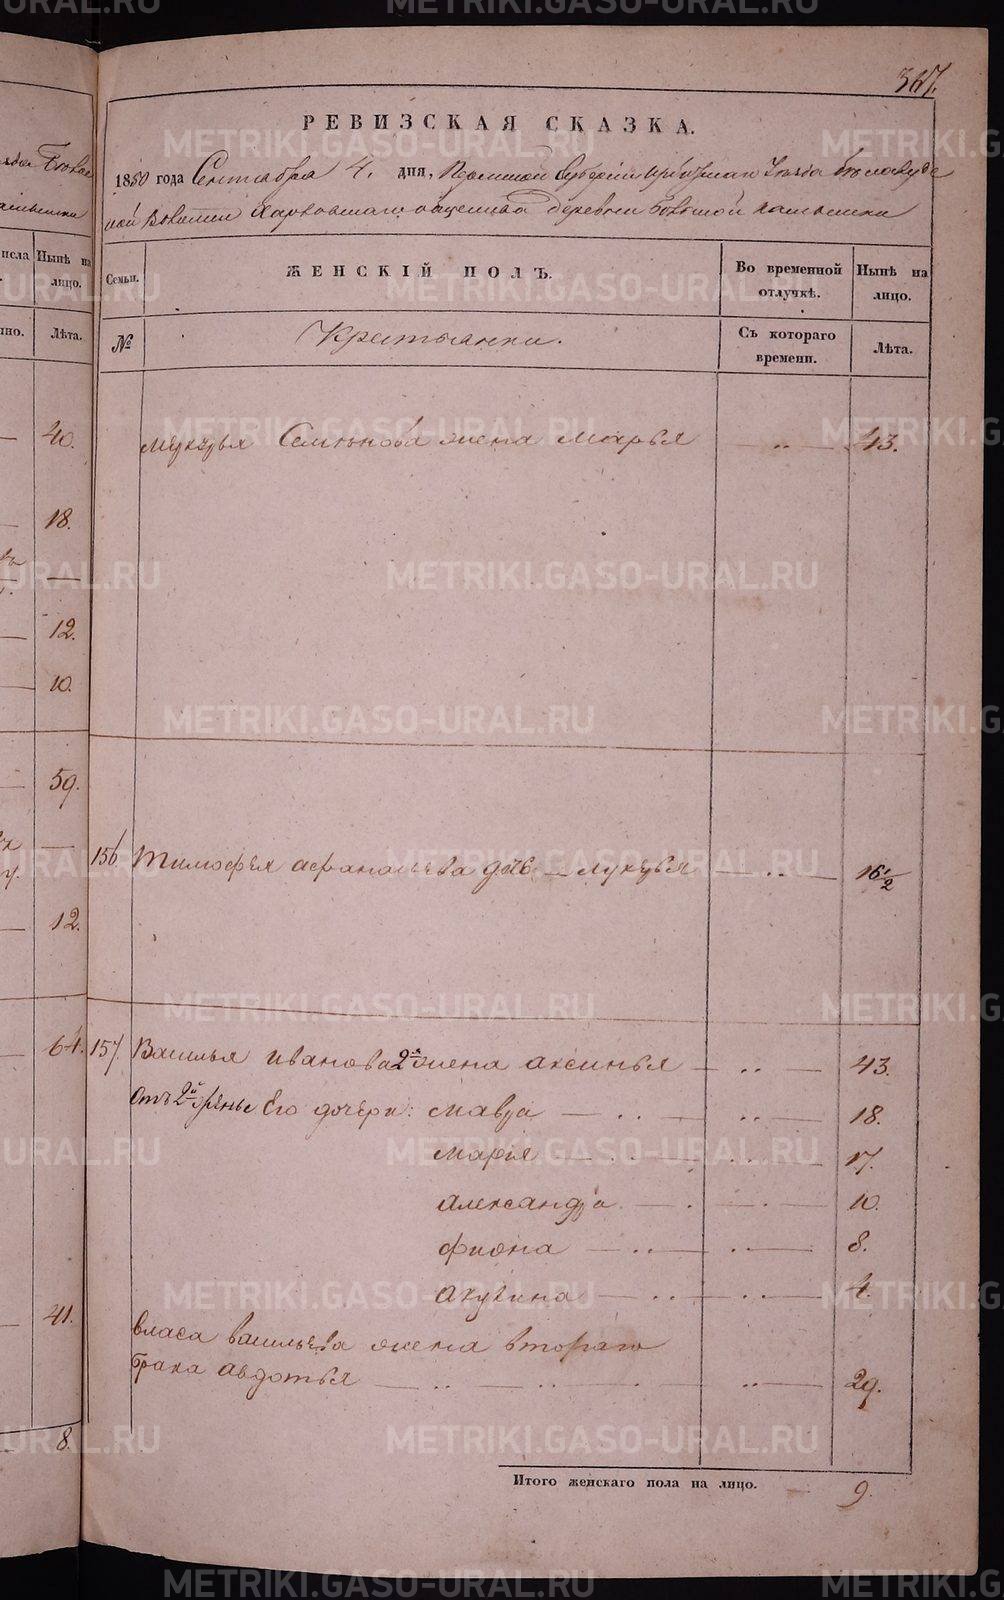 367.
РЕВИЗСКАЯ СКАЗКА.
1850 года Сентября 4. дня, Пермской Губернии Ирбитскаго Уезда
Волости Харловскаго общества деревни Большой Камышки
Семьи. ЖЕНСКІЙ ПОЛЪ. Во временной отлучкѣ. Нынѣ на лицо.
№ Крестьянки. Съ котораго времени. Лѣта.
Семенова жена Марья 43.
156 Тимофея Афанасьева дочь Лукерья 16 1/2
157. Василья Иванова 2я жена Аксинья 43.
Отъ 2й Его дочери: Мавра 18.
Марія 17.
Александра 10.
Фиона 8.
Акулина 4.
Власа Васильева жена втораго
брака Авдотья 29.
Итого женскаго пола на лицо. 9.
Нынѣ на лицо.
Лѣта.
40.
18.
12.
10.
59.
12.
64.
41.
8.
METRIKI.GASO-URAL.RU